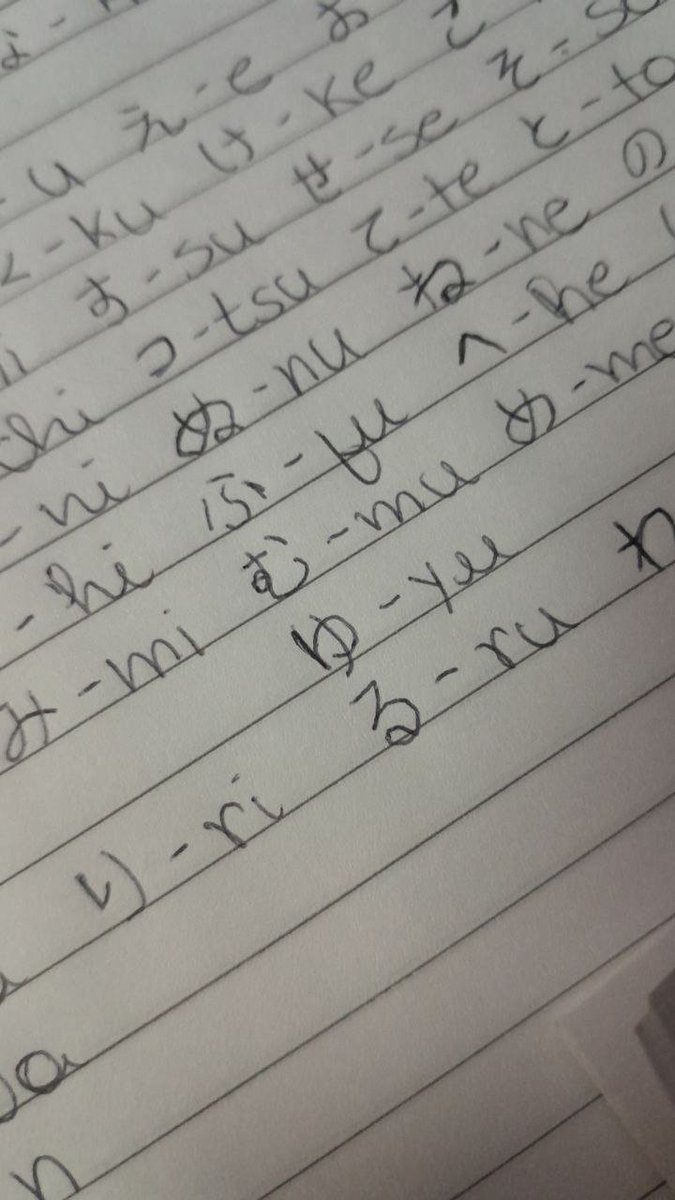 - u え - e お
く - ku け - ke こ
す - su せ - se そ - so
chi つ - tsu て - te と - to
- ni ぬ - nu ね - ne の
- hi ふ - fu へ - he
み - mi む - mu め - me
ゆ - yu
り - ri る - ru
n